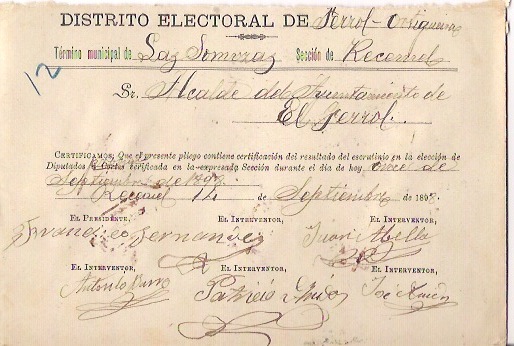 DISTRITO ELECTORAL DE Ferrol-Ortigueira
Término municipal de Las Somozas Sección de Recemel
12
Sr. Alcalde del Ayuntamiento de
El Ferrol.
CERTIFICAMOS: Que el presente pliego contiene certificación del resultado del escrutinio en la elección de
Diputados á Cortes verificada en la expresada Sección durante el dia de hoy once de
Septiembre de
Recemel de Septiembre de 189
EL PRESIDENTE, EL INTERVENTOR, EL INTERVENTOR,
Francisco Fernandez Juan Abella
EL INTERVENTOR, EL INTERVENTOR, EL INTERVENTOR,
Antonio Patricio José